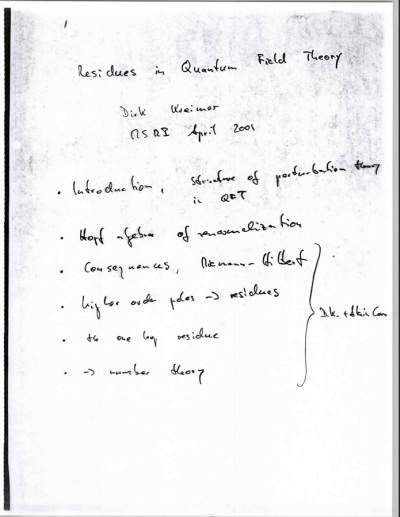 1
Residues in Quantum Field Theory
Dirk Kreimer
MSRI April 2001
• Introduction, structure of perturbation theory
in QFT
• Hopf algebra of renormalization
• Consequences, Riemann-Hilbert
• higher order poles -> residues
• the one loop residue
• -> number theory
D.K. +